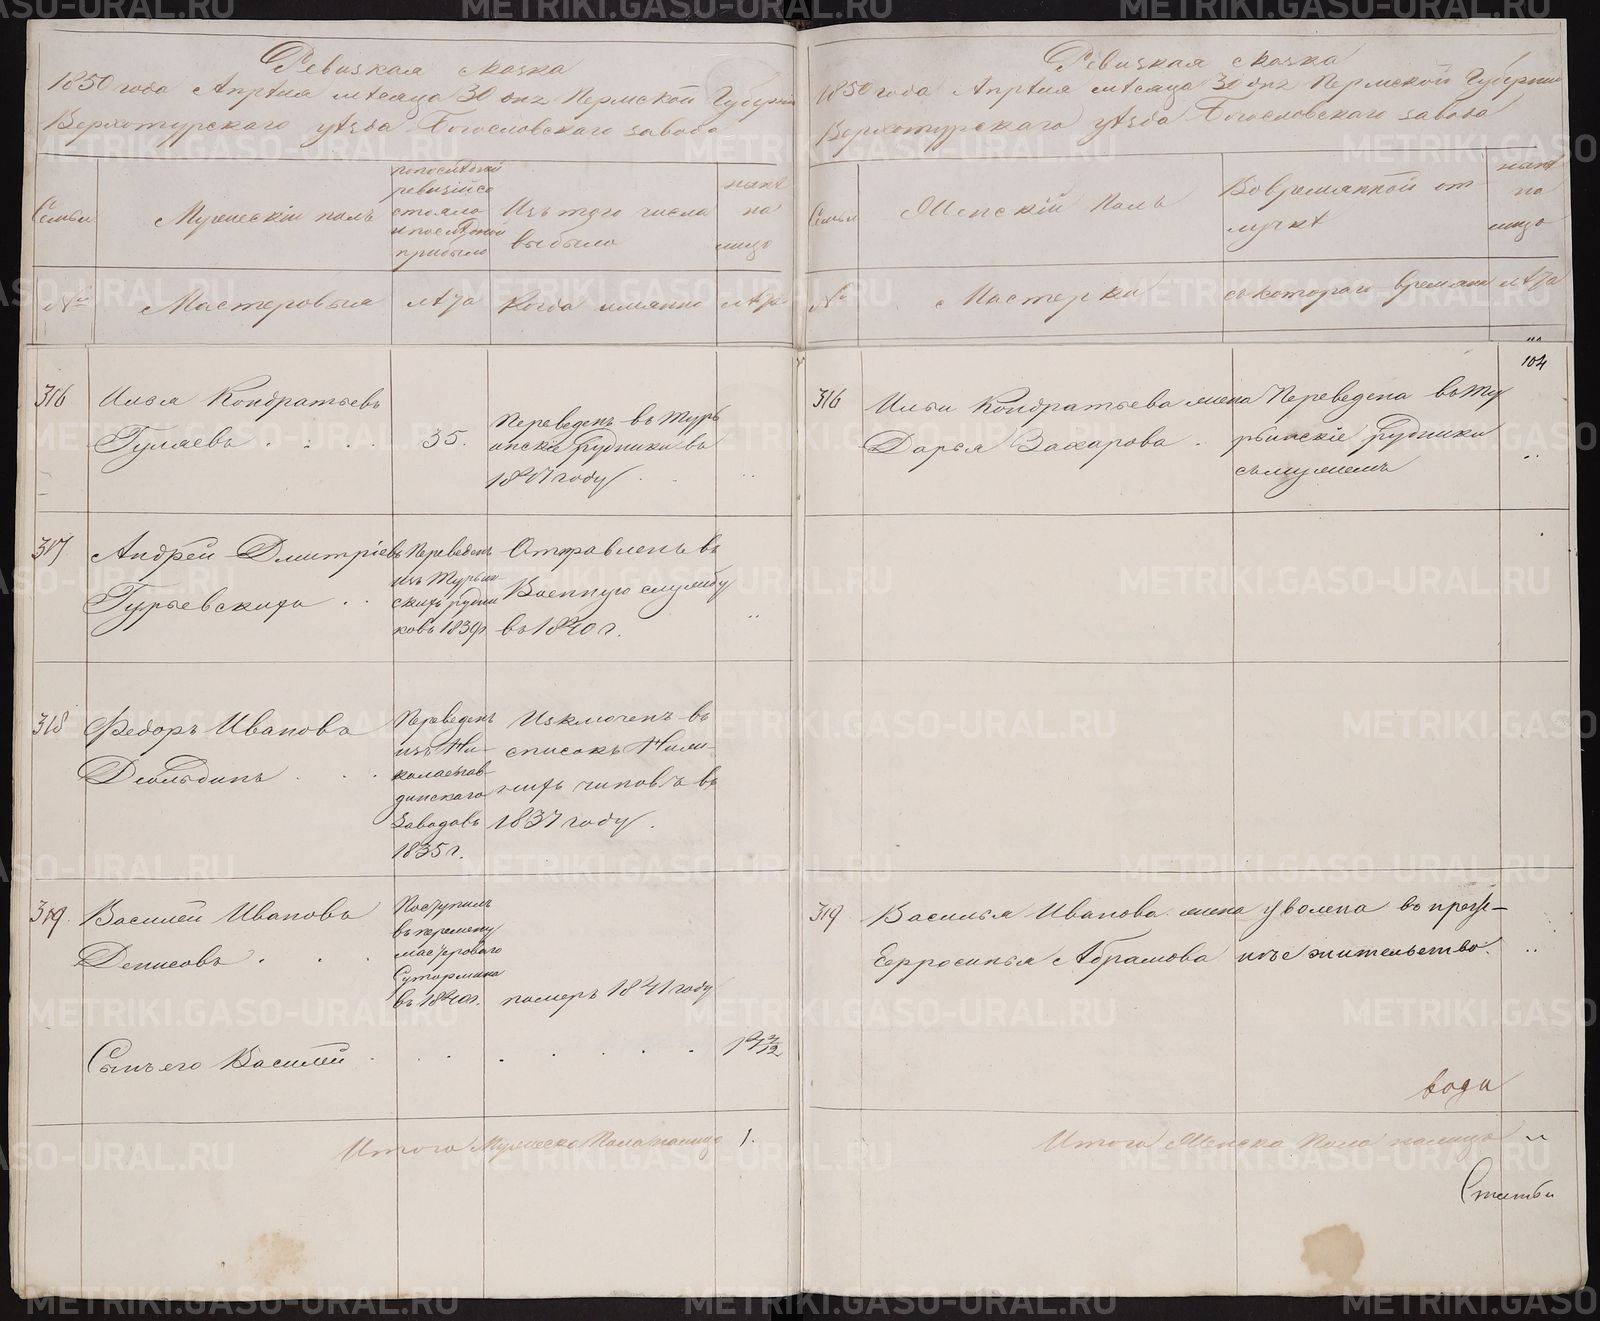 Ревизкая сказка
1850 года Апрѣля мѣсяца 30 дня Пермской Губерни
Верхотурскаго уѣзда Богословскаго завода
Семьи
Мужескiй полъ
по последней
ревизiи со
стояло
и после оной
прибыло
Изъ того числа
выбыло
нынѣ
на
лицо
№
Мастеровыя
лѣта
Когда имянно
лѣта
316
Илья Кондратьевъ
Гуляевъ . . . .
35.
Переведенъ въ Турь
инскiе Рудники въ
1847 году
317
Андрей Дмитрiевъ
Гурьевскихъ . .
Переведенъ
изъ Турьин-
скихъ рудни
ковъ 1839г
Отправленъ въ
Военную службу
въ 1840 г.
318
Федоръ Ивановъ
Переведенъ
изъ Ни-
колаепав-
динскаго
Заводовъ
1835 г.
Изключенъ въ
списокъ Ниж-
нихъ чиновъ въ
1837 году.
319.
Василей Ивановъ
Денисовъ . . .
Поступилъ
въ перемену
мастероваго
Сутормина
въ 1840г.
померъ 1841 году
Сынъ его Василей . . . . . . . .
Итого Мужеска Пола налицо 1.
Ревизкая сказка
1850 года Апрѣля мѣсяца 30 дня Пермской Губернiи
Верхотурскаго уѣзда Богословскаго завода
Семьи
Женскiй Полъ
Во временной от
лучкѣ
нынѣ
на
лицо
№
Мастерки
съ котораго времяни
лѣта
104
316
Ильи Кондратьева жена
Дарья Захарова .
Переведена въ Ту
рьинскiе рудники
съ мужемъ
319.
Василья Иванова жена
Ефросинья Абрамова
уволена въ преж-
нее жительство.
вода
Итого Женска Пола налицо "
Статьи
METRIKI.GASO-URAL.RU